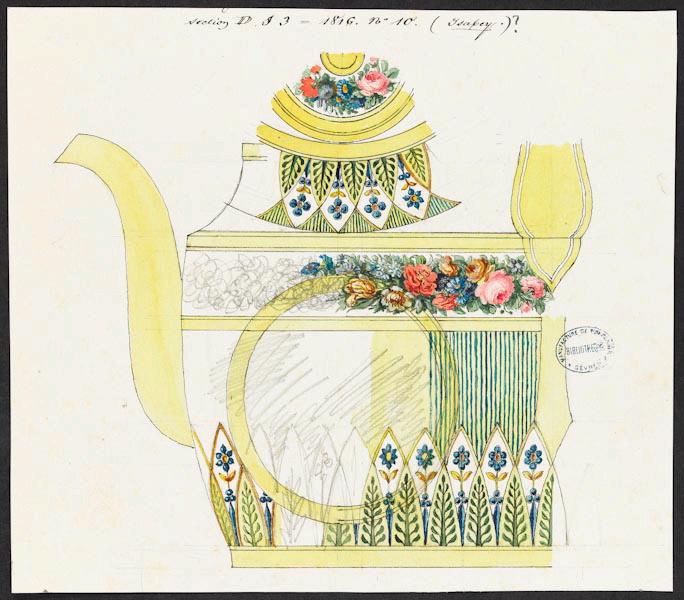 section D. § 3 – 1816. N° 10. (Isabey.)?
MANUFACTURE DE PORCELAINE
BIBLIOTHEQUE
SÈVRES